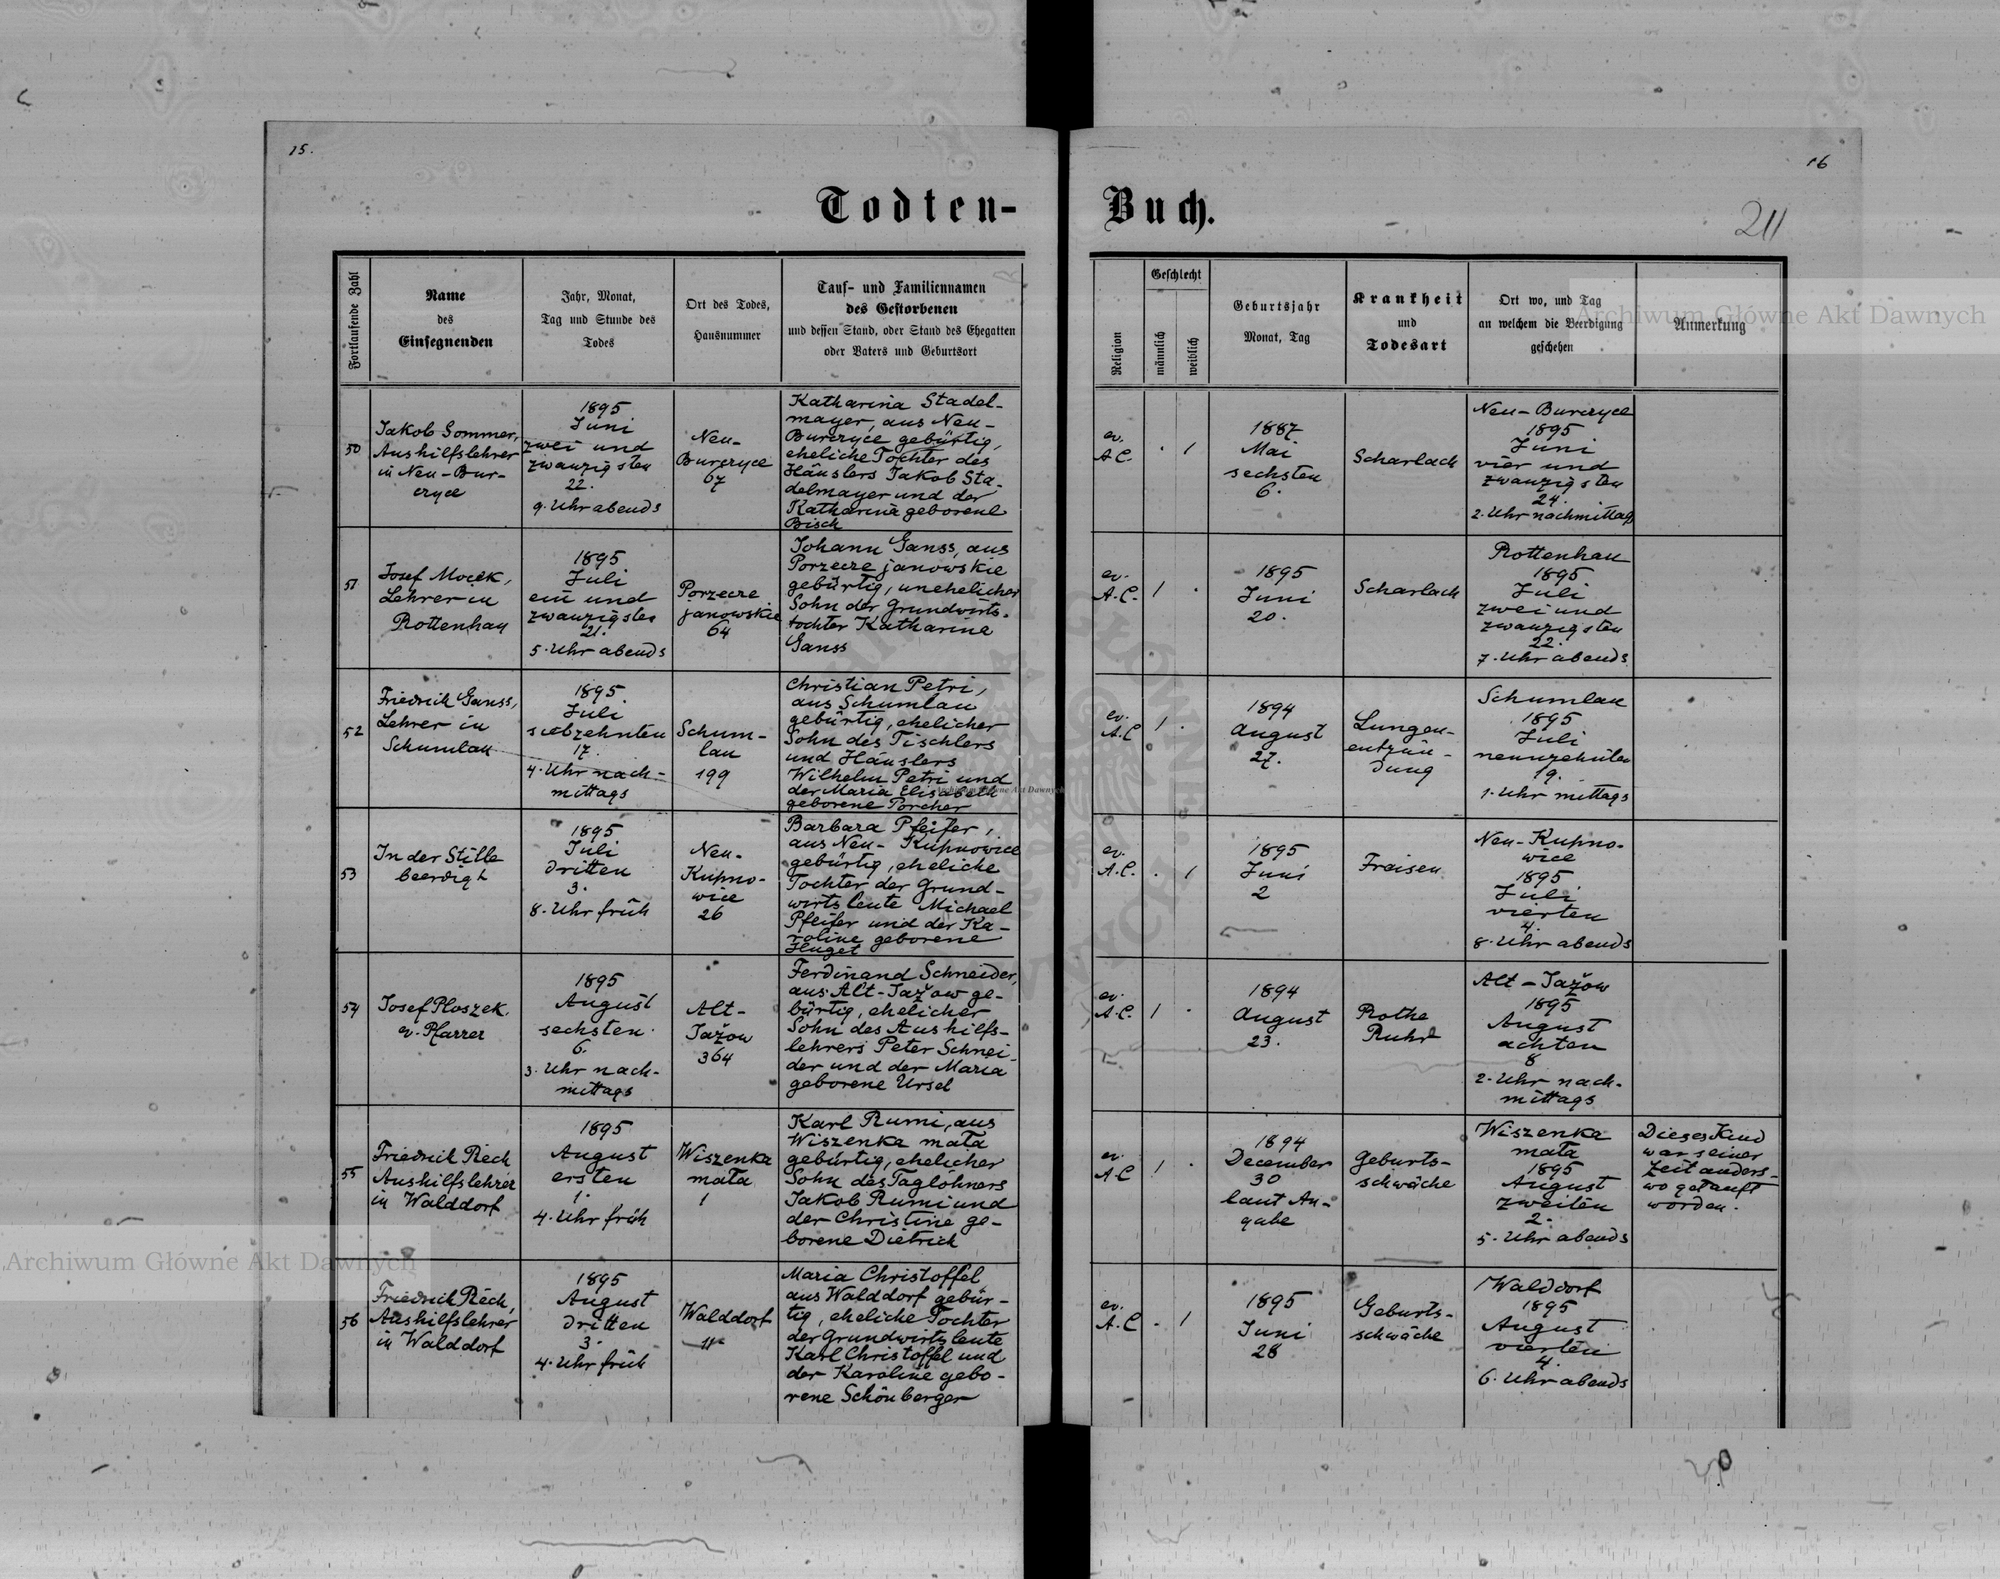 15.
16
Todten-Buch.
211
Fortlaufende Zahl
Name
des
Einsegnenden
Jahr, Monat,
Tag und Stunde des
Todes
Ort des Todes,
Hausnummer
Tauf- und Familiennamen
des Gestorbenen
und dessen Stand, oder Stand des Ehegatten
oder Vaters und Geburtsort
Religion
Geschlecht
männlich
weiblich
Geburtsjahr
Monat, Tag
Krankheit
und
Todesart
Ort wo, und Tag
an welchem die Beerdigung
geschehen
Anmerkung
50
Jakob Sommer,
Aushilfslehrer
in Neu-Bur-
czyce
1895
Juni
zwei und
zwanzigsten
22.
9. Uhr abends
Neu-
Burczyce
67
Katharina Stadel-
mayer, aus Neu-
Burczyce gebürtig,
eheliche Tochter des
Häuslers Jakob Sta-
delmayer und der
Katharina geborene
Bisch
ev.
A.C.
. 1
1887
Mai
sechsten
6.
Scharlach
Neu-Burczyce
1895
Juni
vier und
zwanzigsten
24.
2. Uhr nachmittag
51
Josef Mocek,
Lehrer in
Rottenhan
1895
Juli
ein und
zwanzigsten
21.
5. Uhr abends
Porzecze
janowskie
64
Johann Ganss, aus
Porzecze janowskie
gebürtig, unehelicher
Sohn der Grundwirts-
tochter Katharina
Ganss
ev.
A.C.
1 .
1895
Juni
20.
Scharlach
Rottenhan
1895
Juli
zwei und
zwanzigsten
22.
7. Uhr abends
52
Friedrich Ganss,
Lehrer in
Schumlau
1895
Juli
siebzehnten
17.
4. Uhr nach-
mittags
Schum-
lau
199
Christian Petri,
aus Schumlau
gebürtig, ehelicher
Sohn des Tischlers
und Häuslers
Wilhelm Petri und
der Maria Elisabeth
geborene Porcher
ev.
A.C
1 .
1894
August
27.
Lungen-
entzün-
dung
Schumlau
1895
Juli
neunzehnten
19.
1. Uhr mittags
53
In der Stille
beerdigt
1895
Juli
dritten
3.
8. Uhr früh
Neu-
Kupno-
wice
26
Barbara Pfeifer,
aus Neu-Kupnowice
gebürtig, eheliche
Tochter der Grund-
wirtsleute Michael
Pfeifer und der Ka-
roline geborene
Huget
ev.
A.C.
. 1
1895
Juni
2
Fraisen
Neu-Kupno-
wice
1895
Juli
vierten
4.
8. Uhr abends
54
Josef Ploszek,
ev. Pfarrer
1895
August
sechsten
6.
3. Uhr nach-
mittags
Alt-
Jažow
364
Ferdinand Schneider,
aus Alt-Jažow ge-
bürtig, ehelicher
Sohn des Aushilfs-
lehrers Peter Schnei-
der und der Maria
geborene Ursel
ev.
A.C.
1 .
1894
August
23.
Rothe
Ruhr
Alt-Jažow
1895
August
achten
8
2. Uhr nach-
mittags
55
Friedrich Rech
Aushilfslehrer
in Walddorf
1895
August
ersten
1.
4. Uhr früh
Wiszenka
mała
1
Karl Rumi, aus
Wiszenka mała
gebürtig, ehelicher
Sohn des Taglöhners
Jakob Rumi und
der Christine ge-
borene Dietrich
ev.
A C
1 .
1894
December
30
laut An-
gabe
Geburts-
schwäche
Wiszenka
mała
1895
August
zweiten
2.
5. Uhr abends
Dieses Kind
war seiner
Zeit anders-
wo getauft
worden.
56
Friedrich Rech,
Aushilfslehrer
in Walddorf
1895
August
dritten
3.
4. Uhr früh
Walddorf
11
Maria Christoffel,
aus Walddorf gebür-
tig, eheliche Tochter
der Grundwirtsleute
Karl Christoffel und
der Karoline gebo-
rene Schönberger
ev.
A.C
. 1
1895
Juni
28
Geburts-
schwäche
Walddorf
1895
August
vierten
4.
6. Uhr abends
Archiwum Główne Akt Dawnych
Archiwum Główne Akt Dawnych
Archiwum Główne Akt Dawnych